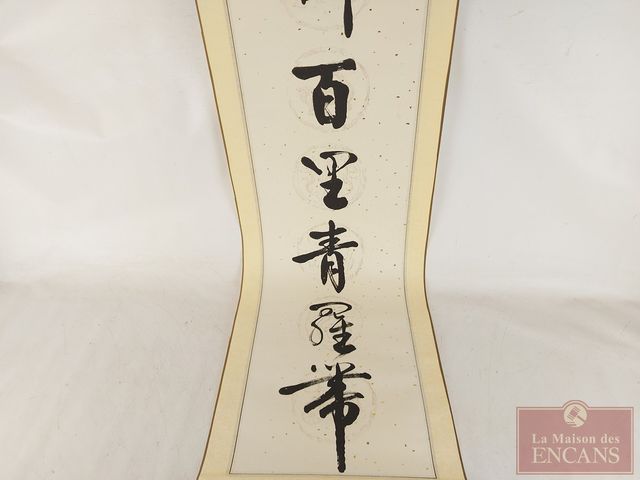 百里青羅帶
La Maison des
ENCANS